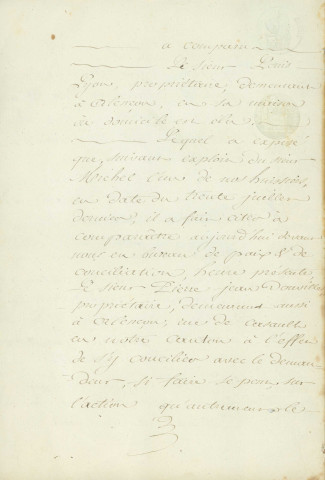 a comparu
Le sieur Louis
Lyon, propriétaire, demeurant
à Orleans, en sa maison
et domicile
Lequel a exposé
que, suivant exploit du sieur
Michel l'un de nos huissiers,
en date du trente juillet
dernier, il a fait citer à
comparaître aujourd'hui devant
nous en bureau de paix & de
conciliation, heure présente,
Le sieur Pierre Jean
propriétaire, demeurant aussi
à
en notre canton à l'effet
de s'y concilier avec le deman-
deur, si faire se peut, sur
l'action qu'autrement le